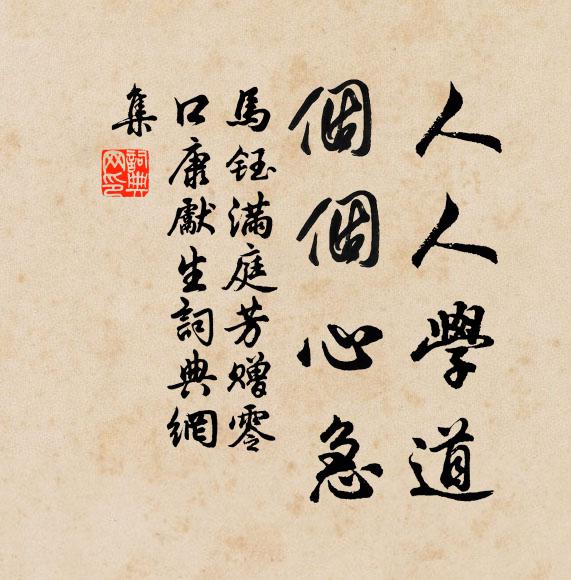 人人學道
個個心急
馬鈺滿庭芳贈零
口康獻生詞典網
集
詞典
网印